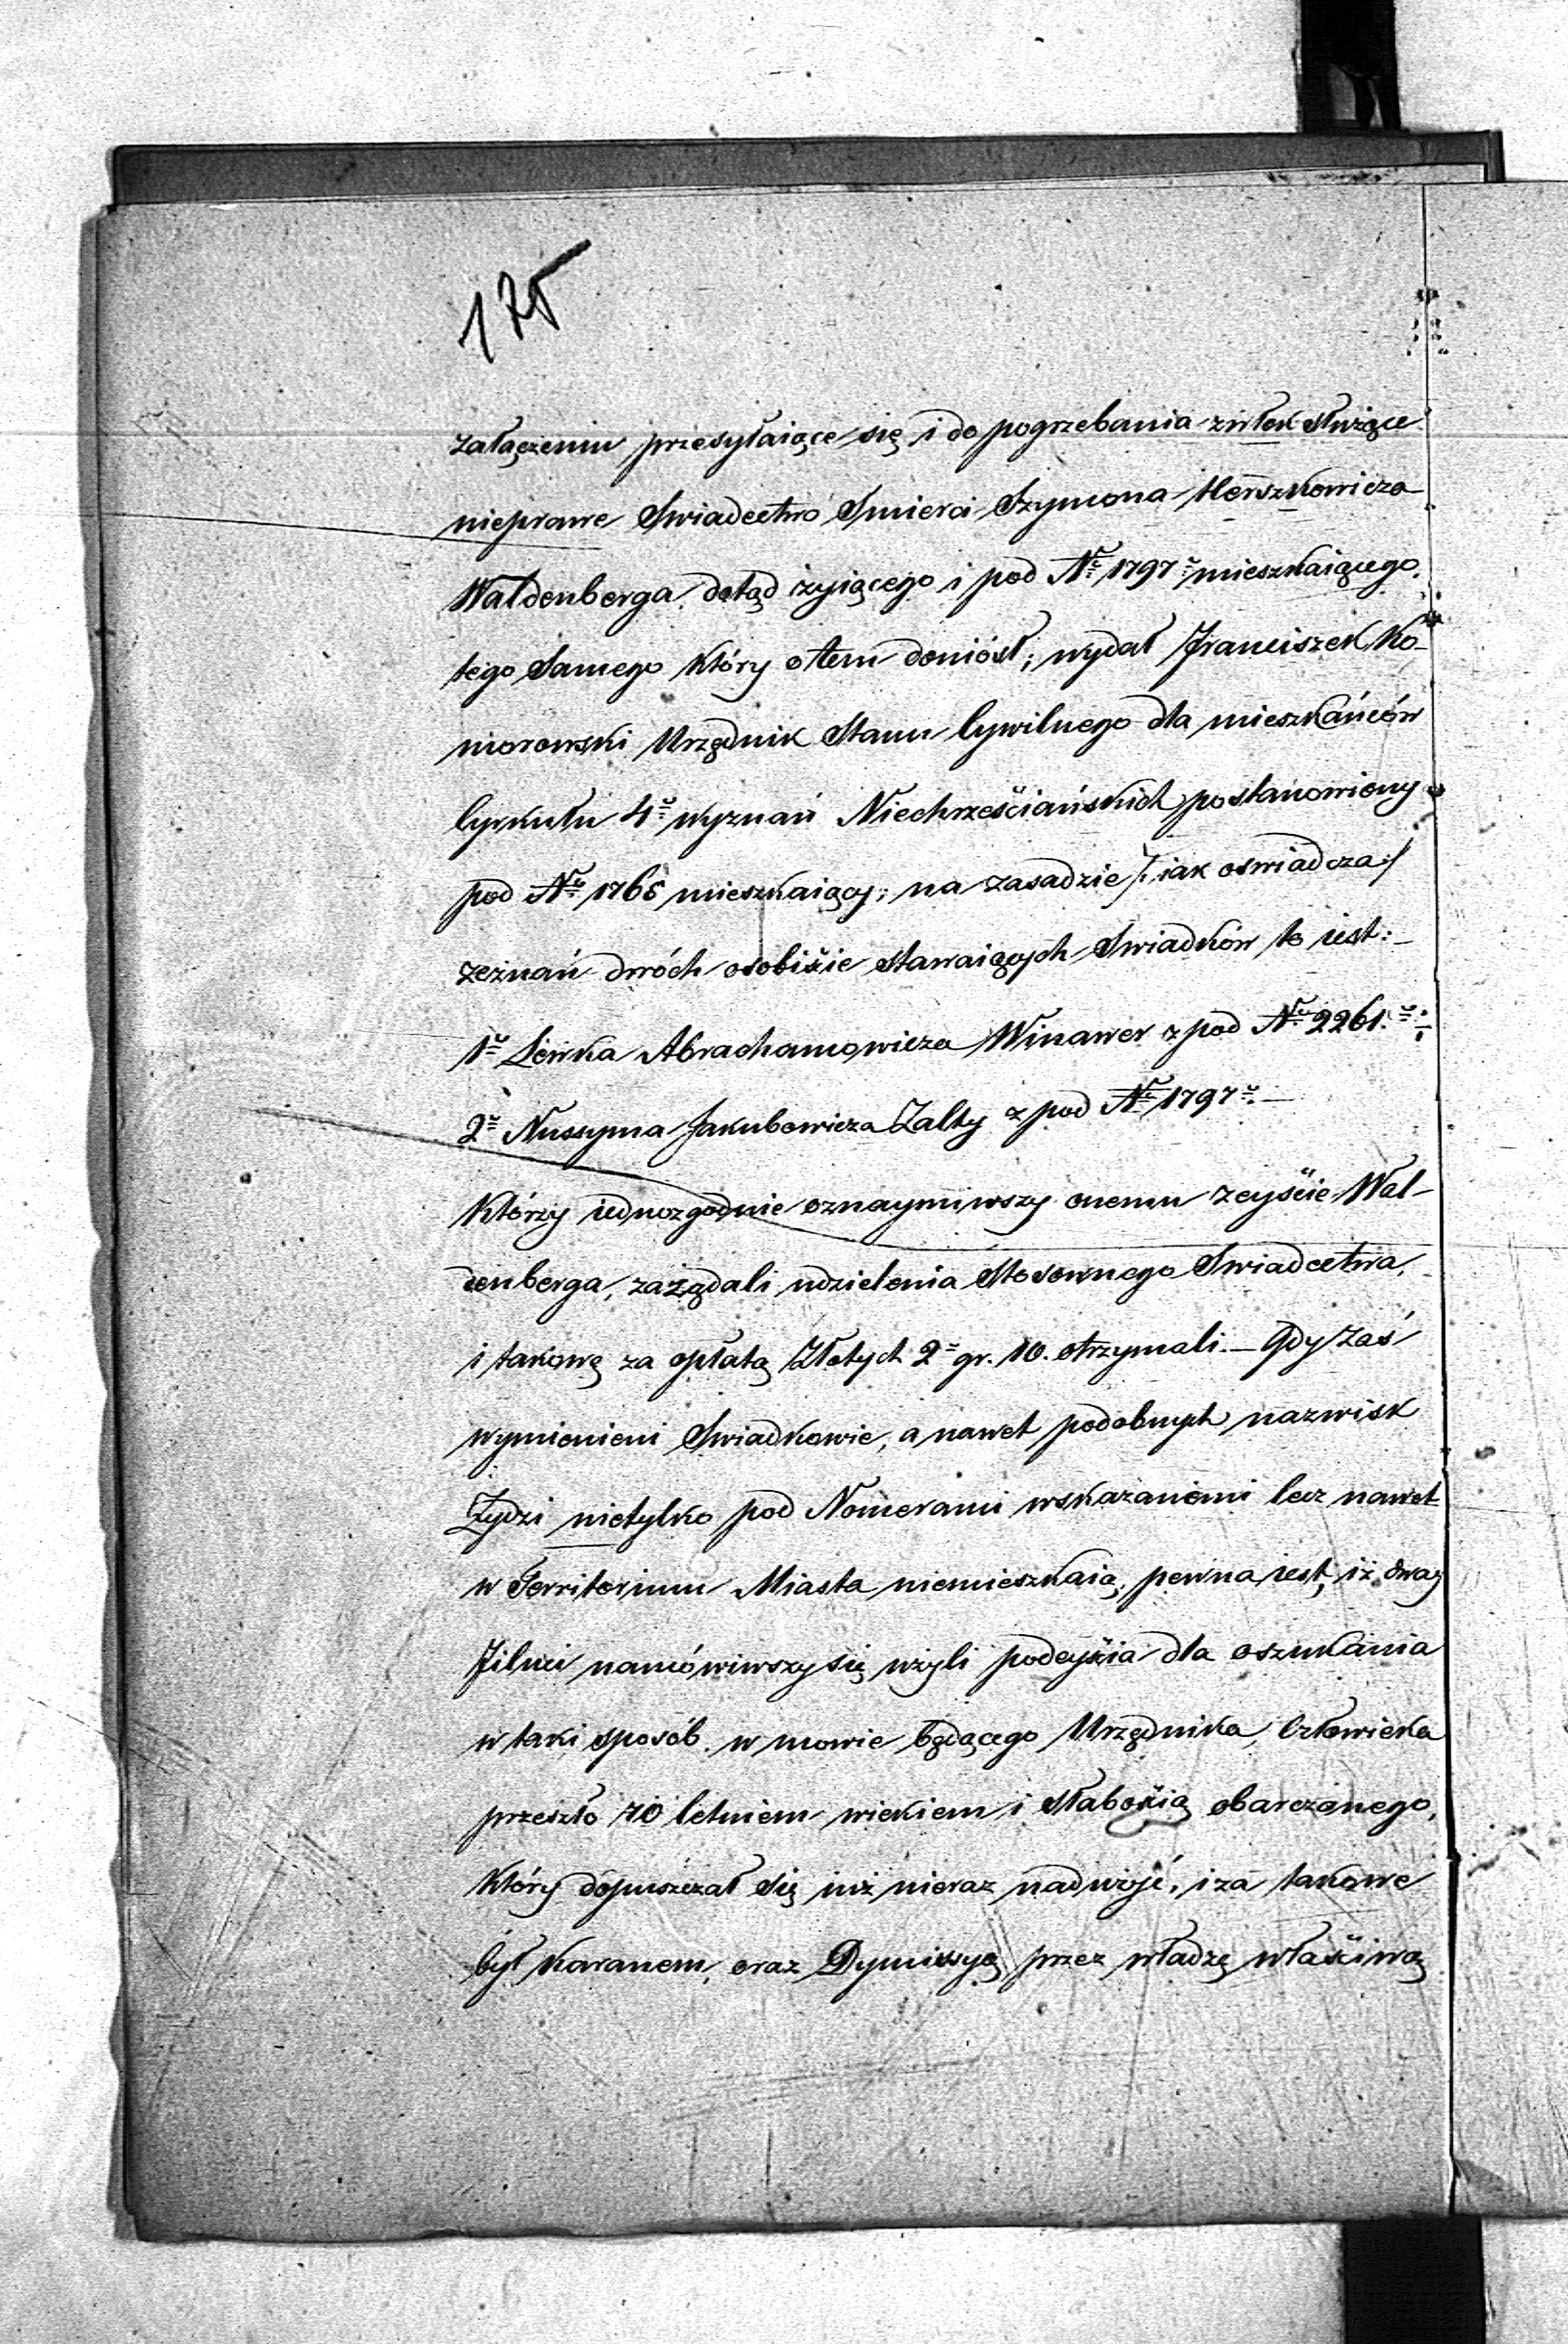 175
załączeniu przesyłaiące się i do pogrzebania zwłok służące
nieprawe Swiadectwo Smierci Szymona Herszkowicza
Waldenberga dotąd żyiącego i pod Nr 1797 mieszkaiącego,
tego Samego który otem doniósł; wydał Franciszek Ko-
morowski Urzędnik Stanu Cywilnego dla mieszkańców
Cyrkułu 4º wyznań Niechrześciańskich postanowiony
pod Nr 1765 mieszkaiący; na zasadzie /: iak oswiadcza :/
zeznań dwóch osobiście stawaiących Swiadków to iest:
1º Lewka Abrachamowicza Winawer z pod Nr 2261.
2º Nussyma Jakubowicza Zalty z pod Nr 1797.
Którzy iednozgodnie oznaymiwszy onemu zeyście Wal-
denberga, zażądali udzielenia stosownego Swiadectwa,
i takowę za opłatą Złotych 2 gr. 10. otrzymali. – Gdy zaś
wymienieni Swiadkowie, a nawet podobnych nazwisk
Żydzi nietylko pod Nomerami wskazanemi lecz nawet
w Territorium Miasta niemieszkaią, pewna iest, iż dway
Filuci namówiwszy się użyli podeyścia dla oszukania
w taki sposób w mowie będącego Urzędnika, Człowieka
przeszło 70 letniem wiekiem i słabością obarczonego,
który dopuszczał się iuż nieraz nadużyć, i za takowe
był karanem, oraz Dymissyą przez władzę właściwą